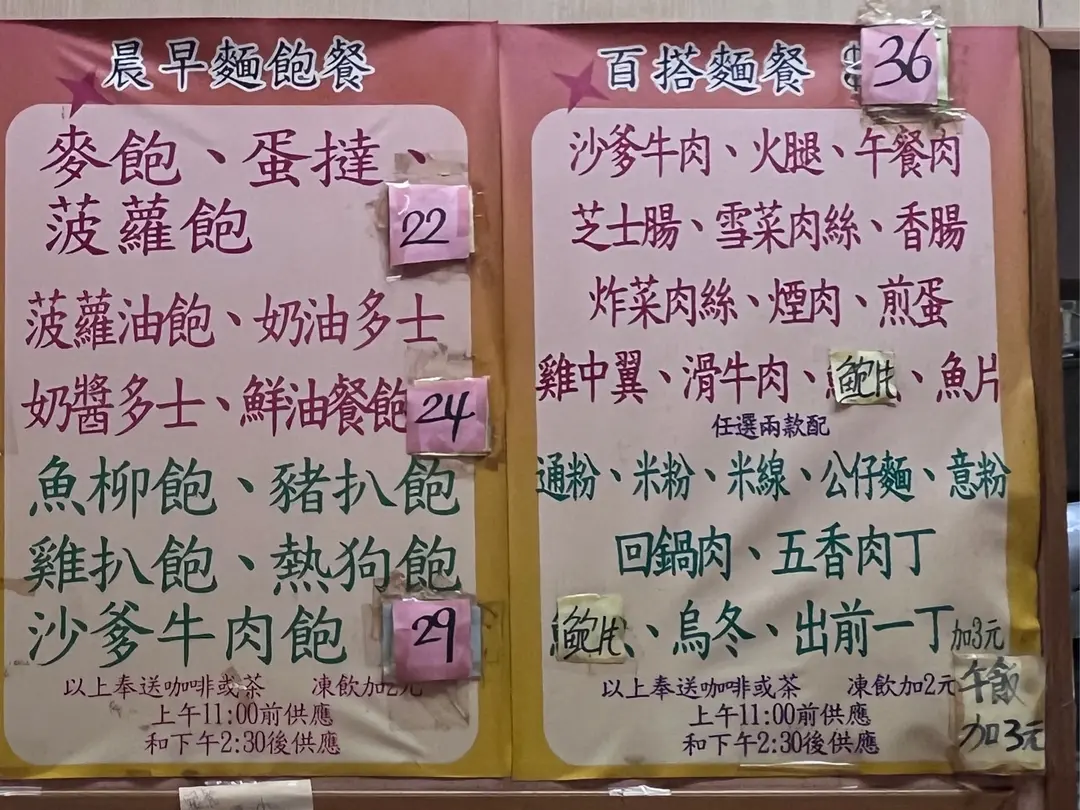 晨早麵飽餐
麥飽、蛋撻、
菠蘿飽
22
菠蘿油飽、奶油多士
奶醬多士、鮮油餐飽
24
魚柳飽、豬扒飽
雞扒飽、熱狗飽
沙爹牛肉飽
29
以上奉送咖啡或茶 凍飲加2元
上午11:00前供應
和下午2:30後供應
百搭麵餐
36
沙爹牛肉、火腿、午餐肉
芝士腸、雪菜肉絲、香腸
炸菜肉絲、煙肉、煎蛋
雞中翼、滑牛肉、鮑片、魚片
任選兩款配
通粉、米粉、米線、公仔麵、意粉
回鍋肉、五香肉丁
鮑片、烏冬、出前一丁加3元
以上奉送咖啡或茶 凍飲加2元
上午11:00前供應
和下午2:30後供應
午飯
加3元